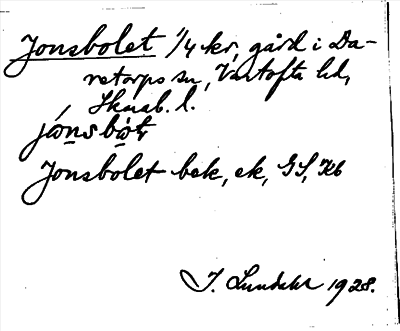 Jonsbolet 1/4 kr, gård i Da-
retorps sn, Vartofta hd,
Skarab. l.
jònsbòt,
Jonsbolet bek, ek, GS, Kb
J. Lundahl 1928.